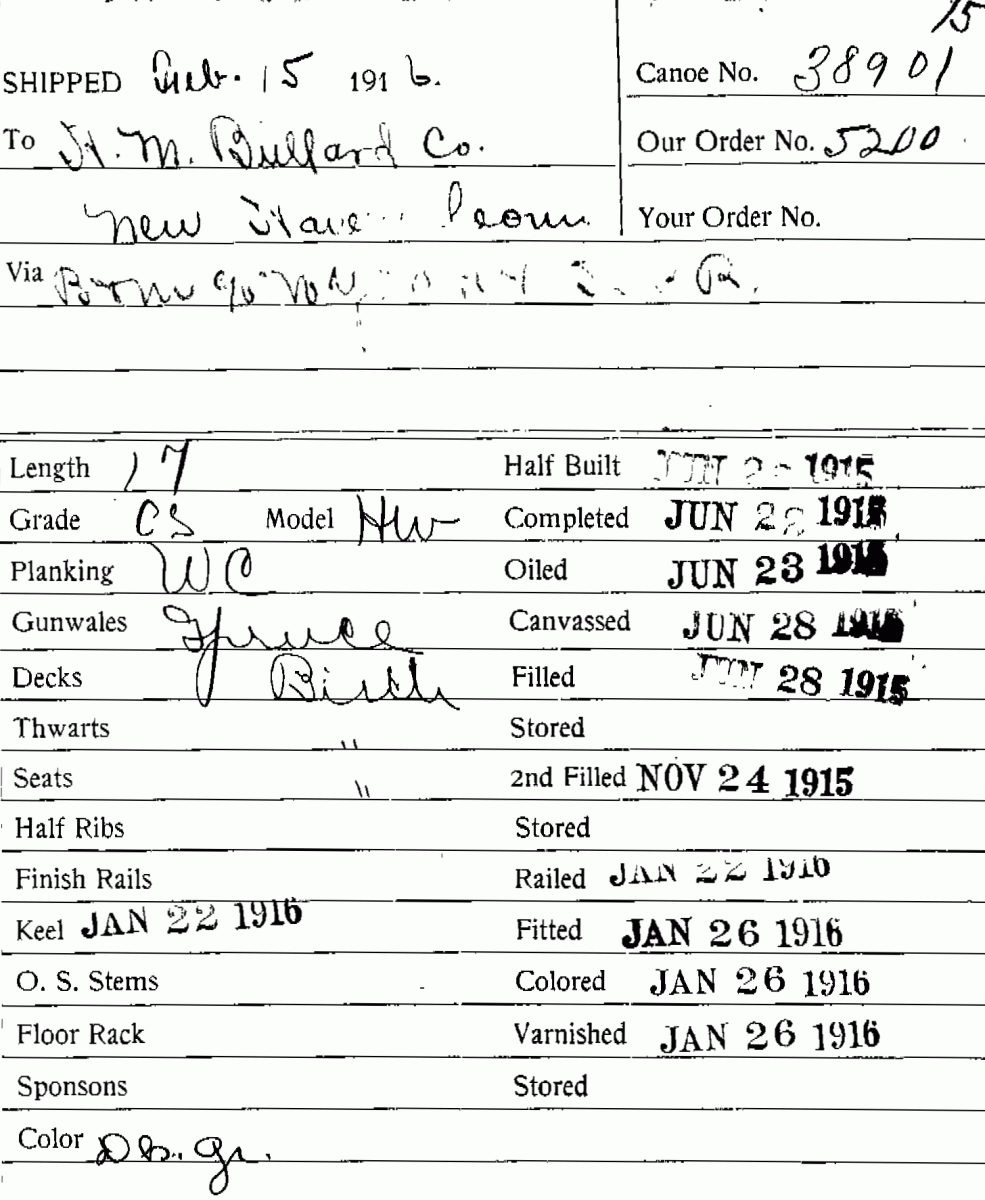 15
SHIPPED Feb. 15 1916. Canoe No. 38901
To H. M. Bullard Co. Our Order No. 5200
New Haven Conn. Your Order No.
Via
Length 17 Half Built JUN 1915
Grade CS Model HW Completed JUN 1915
Planking WC Oiled JUN 23 1915
Gunwales Spruce Canvassed JUN 28 1915
Decks Birch Filled JUN 28 1915
Thwarts " Stored
Seats " 2nd Filled NOV 24 1915
Half Ribs Stored
Finish Rails Railed JAN 22 1916
Keel JAN 22 1916 Fitted JAN 26 1916
O. S. Stems Colored JAN 26 1916
Floor Rack Varnished JAN 26 1916
Sponsons Stored
Color Dk. gr.